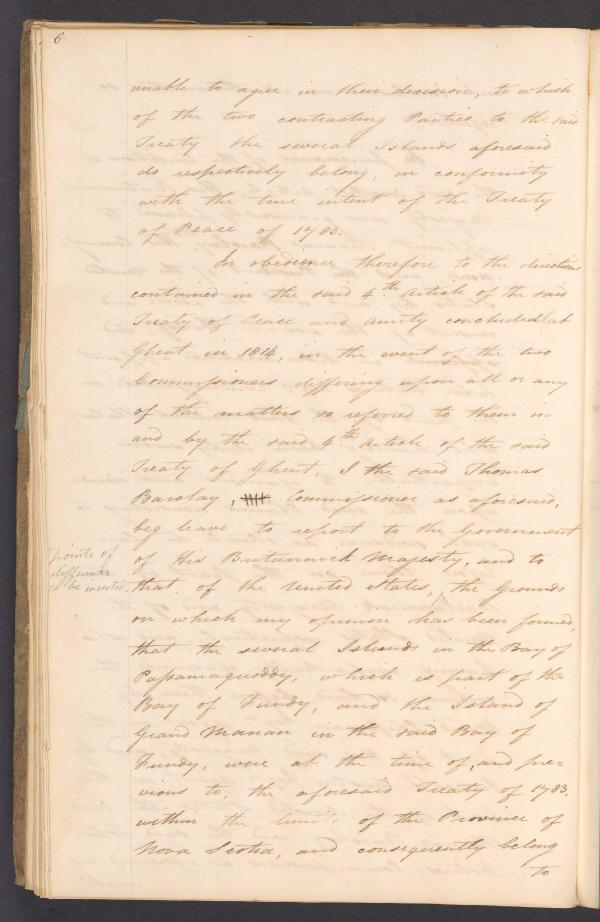 6
unable to agree in their decision, to which
of the two contracting Parties to the said
Treaty the several Islands aforesaid
do respectively belong, in conformity
with the true intent of the Treaty
of Peace of 1783.
In obedience therefore to the directions
contained in the said 4th Article of the said
Treaty of Peace and Amity concluded at
Ghent in 1814, in the event of the two
Commissioners differing upon all or any
of the matters so referred to them in
and by the said 4th Article of the said
Treaty of Ghent, I the said Thomas
Barclay, Commissioner as aforesaid,
beg leave to report to the Government
of His Britannick Majesty, and to
points of
difference
to be inserted
that of the United States, the Grounds
on which my opinion has been formed,
that the several Islands in the Bay of
Passamaquoddy, which is part of the
Bay of Fundy, and the Island of
Grand Manan in the said Bay of
Fundy, were at the time of, and pre-
vious to, the aforesaid Treaty of 1783,
within the limits of the Province of
Nova Scotia, and consequently belong
to